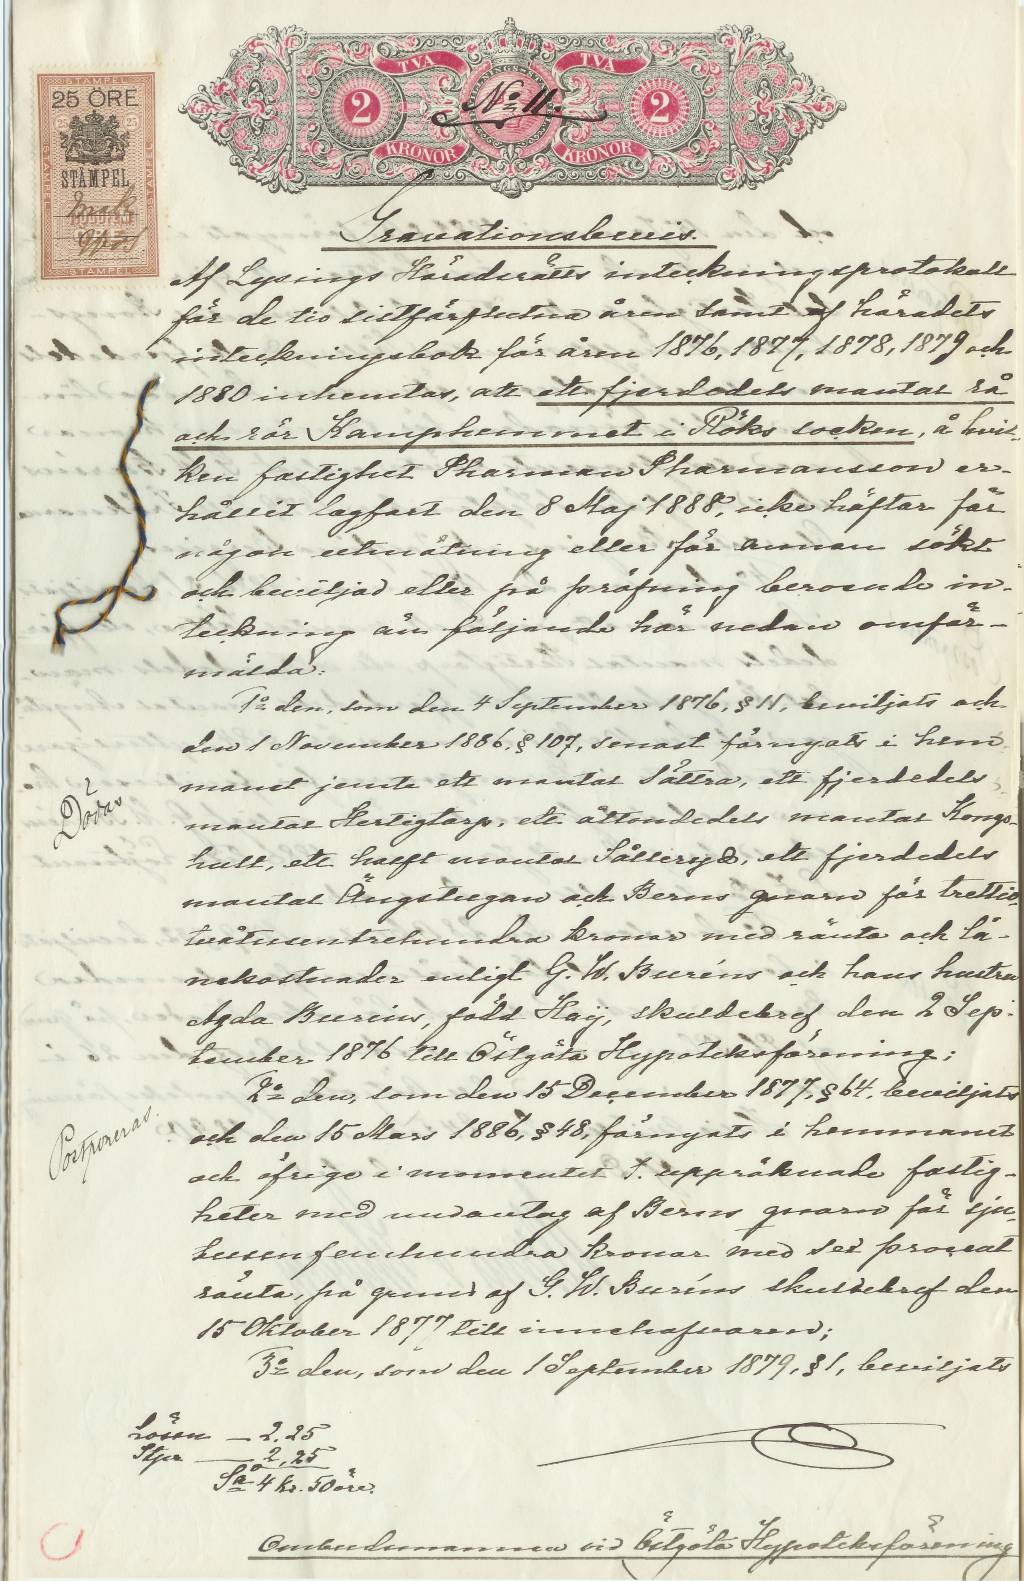 STÄMPEL
25 ÖRE
25 25
STÄMPEL
STÄMPEL
TVÅ TVÅ
2 No 11. 2
KRONOR KRONOR
Gravationsbevis.
Af Lysings Häradsrätts inteckningsprotokoll
för de tio sistförflutna åren samt af häradets
inteckningsbok för åren 1876, 1877, 1878, 1879 och
1880 inhemtas, att ett fjerdedels mantal rå
och rör Kamphemmet i Röks socken, å hvil-
ken fastighet Pharman Pharmansson er-
hållit lagfart den 8 Maj 1888, icke häftar för
någon utmätning eller för annan sökt
och beviljad eller på pröfning beroende in-
teckning än följande här nedan omför-
mälda:
1o den, som den 4 September 1876, § 11, beviljats och
den 1 November 1886, § 107, senast förnyats i hem
manet jemte ett mantal Sättra, ett fjerdedels
mantal Hertigtorp, ett åttondedels mantal Kongs-
hult, ett halft mantal Sätteryd, ett fjerdedels
mantal Ängstugan och Berns qvarn för trettio
tvåtusentrehundra kronor med ränta och lå-
nekostnader enligt G. W. Buréns och hans hustru
Agda Buréns, född Haij, skuldebref den 2 Sep-
tember 1876 till Östgöta Hypoteksförening;
2o den, som den 15 December 1877, § 64, beviljats
och den 15 Mars 1886, § 48, förnyats i hemmanet
och öfrige i momentet 1. uppräknade fastig-
heter med undantag af Berns qvarn för sju-
tusenfemhundra kronor med sex procent
ränta, på grund af G. W. Buréns skuldebref den
15 Oktober 1877 till innehafvaren;
3o den, som den 1 September 1879, § 1, beviljats
Dödas
Postponeras.
Lösen — 2.25
Stpr — 2,25
Sa 4 Kr. 50 öre.
Ombudsmannen vid Östgöta Hypoteksförening